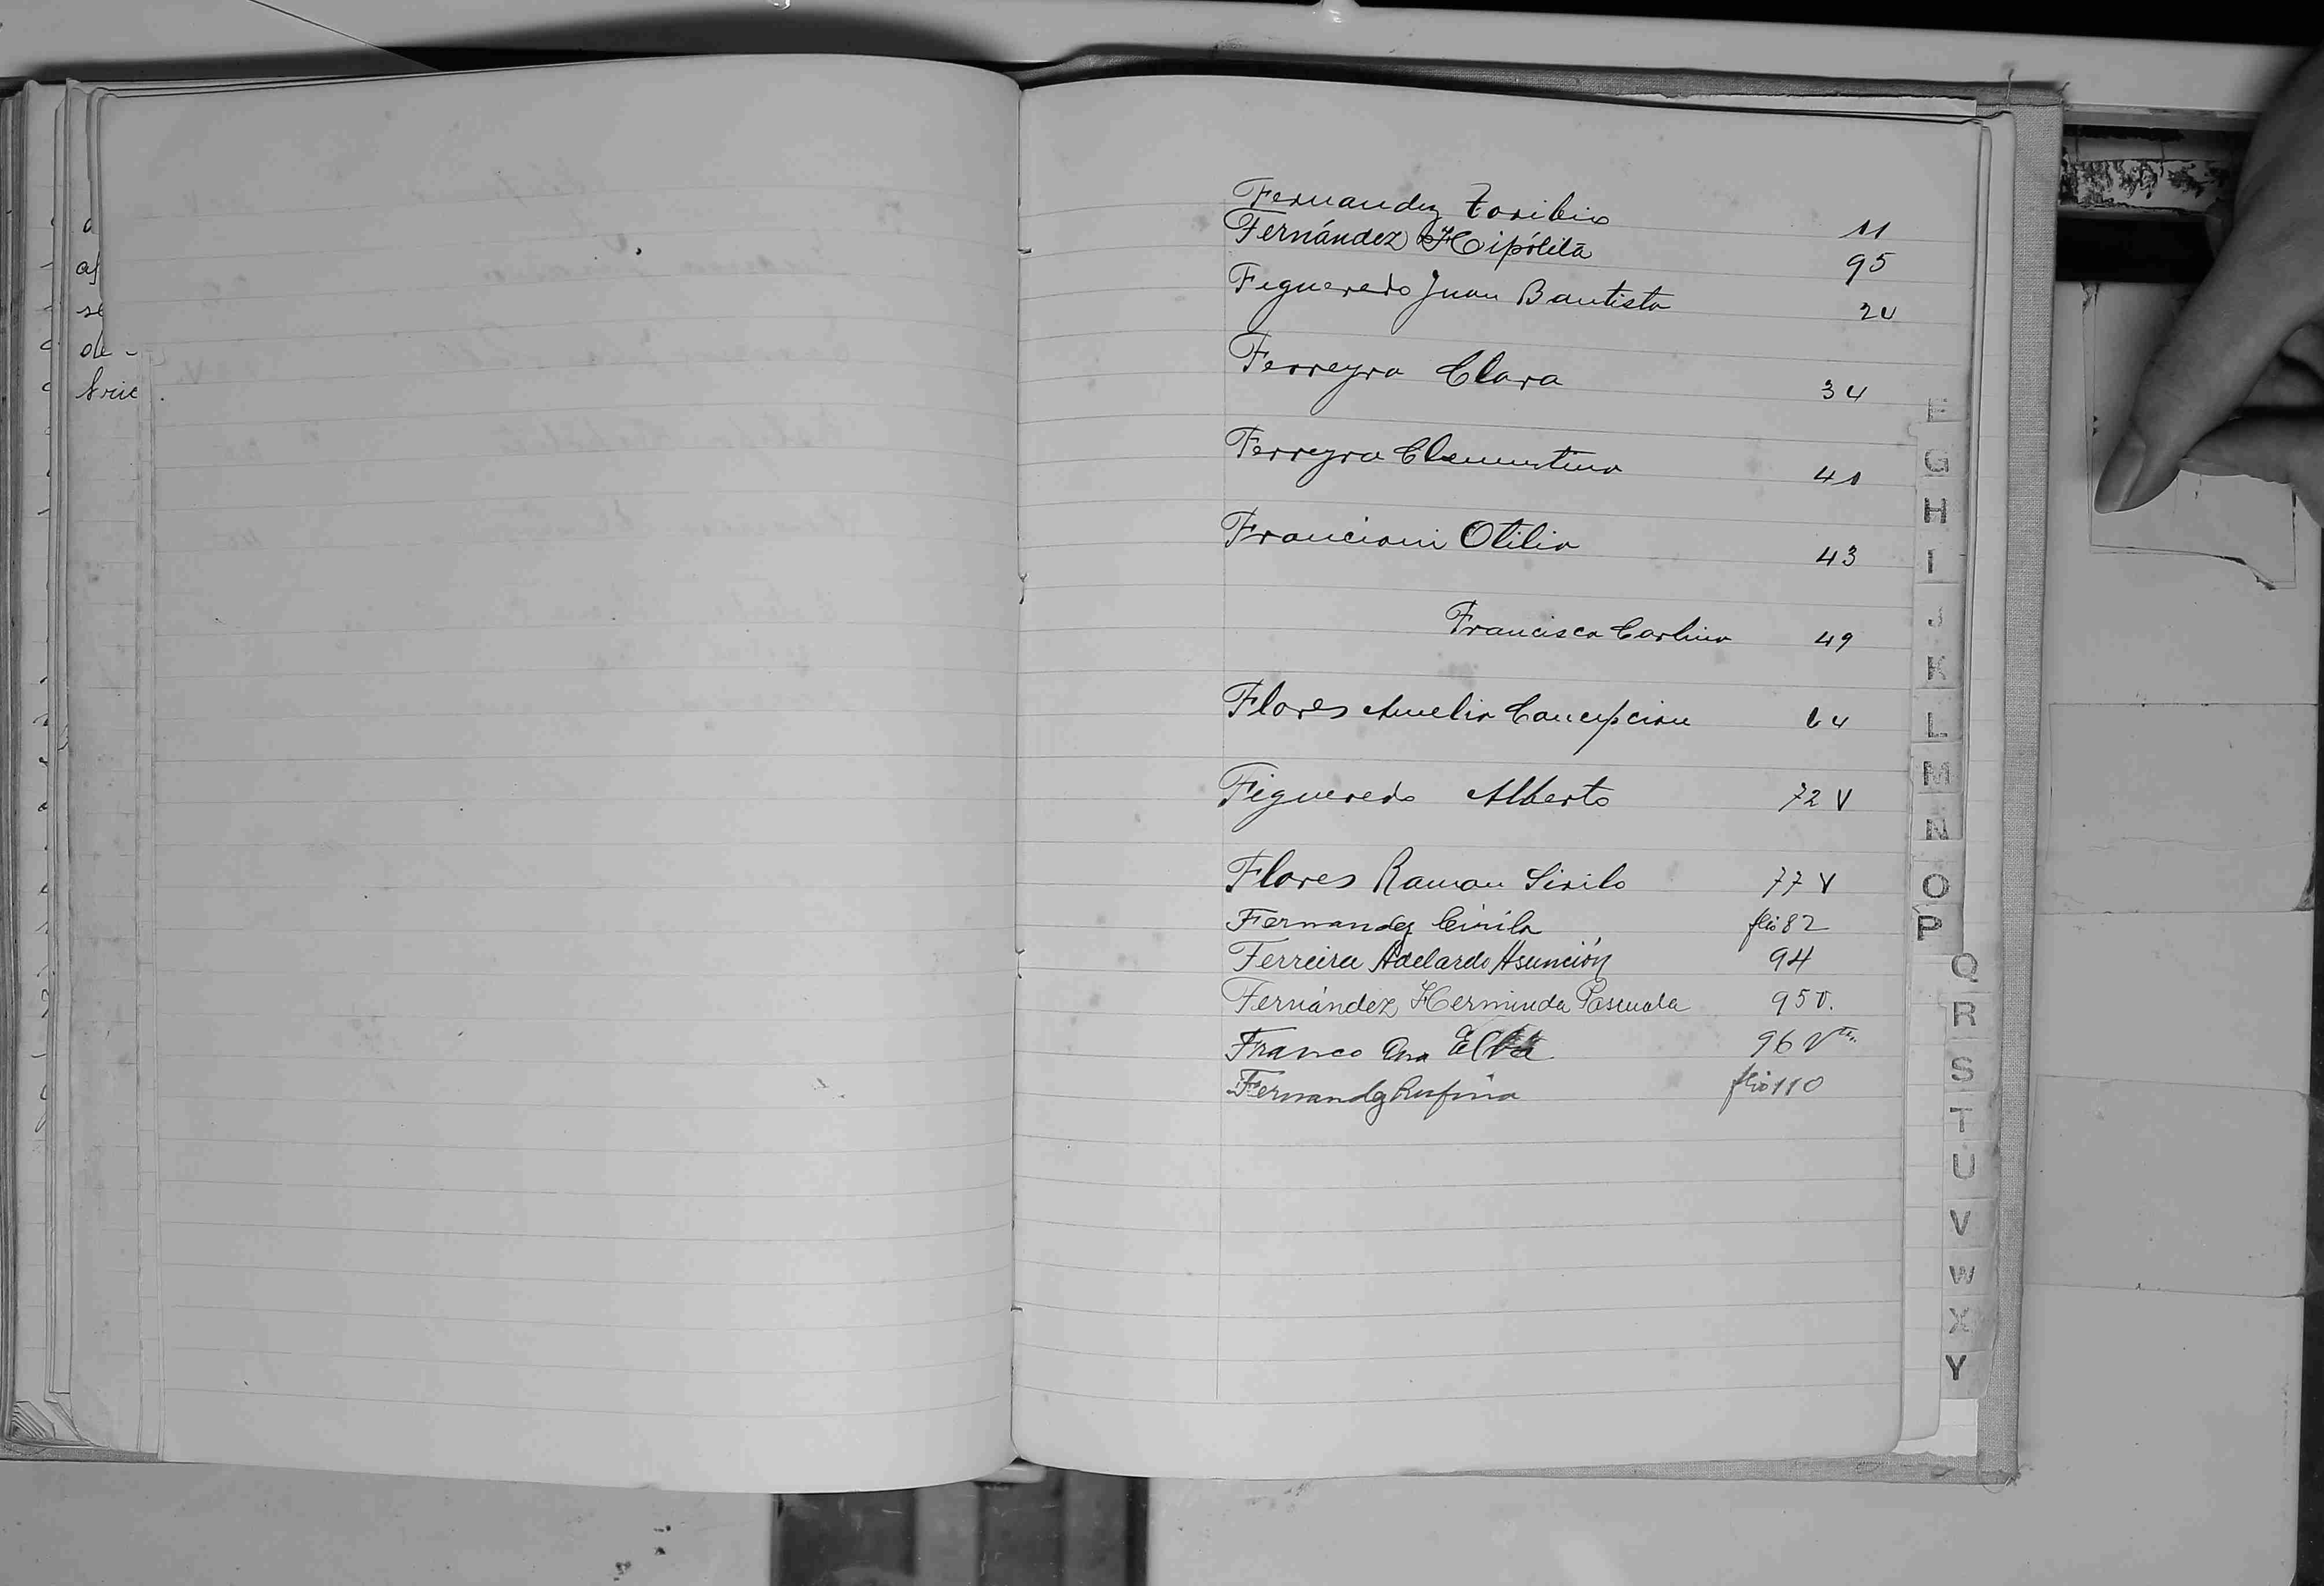 a
af
se
de
Fernandez Toribio 11
Fernández Hipólita 95
Figueredo Juan Bautista 24
Ferreyra Clara 34
Ferreyra Clementina 41
Francioni Otilia 43
Francisca Carlina 49
Flores Amelia Concepcion 64
Figueredo Alberto 72 V
Flores Ramon Sirilo 77 V
Fernandez Cirila flio 82
Ferreira Adelardo Asunción 94
Fernández Herminda Pascuala 95 v.
Franco Ana Elba 96 Vta.
Fernandez Rufina flio 110
F
G
H
I
J
K
L
M
N
O
P
Q
R
S
T
U
V
W
X
Y